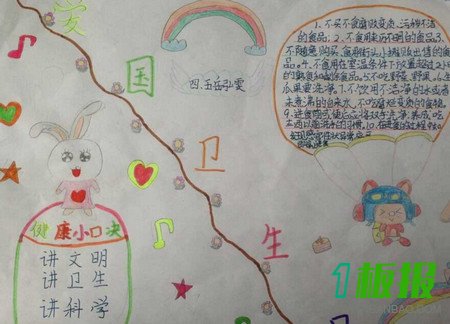 爱
国
卫
生
四.五岳弘雯
1、不买不食腐败变质、污秽不洁
的食品;2、不食用来历不明的食品;3、
不随意购买、食用街头小摊贩出售的食
品。4、不食用在室温条件下放置超过2小时
的熟食和剩余食品。5、不吃野菜、野果。6、生
瓜果要洗净。7、不饮用不洁净的水或者
未煮沸的自来水。
9、进食前或便后必将双手洗净,养成吃
健康小口决
讲文明
讲卫生
讲科学
1板报